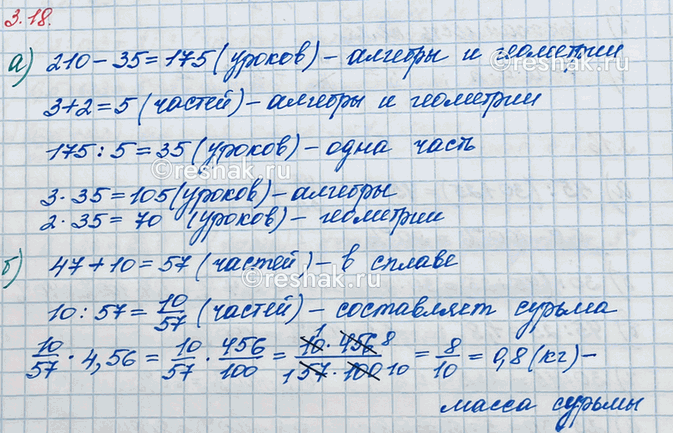 3.18.
а) 210 - 35 = 175 (уроков) - алгебры и геометрии
3+2 = 5 (частей) - алгебры и геометрии
175 : 5 = 35 (уроков) - одна часть
3 · 35 = 105 (уроков) - алгебры
2 · 35 = 70 (уроков) - геометрии
б) 47 + 10 = 57 (частей) - в сплаве
10 : 57 = 10/57 (частей) - составляет сурьма
10/57 · 4,56 = 10/57 · 456/100 = 10 · 456 / 57 · 100 = 8/10 = 0,8 (кг) -
масса сурьмы
©reshak.ru
©reshak.ru
©reshak.ru